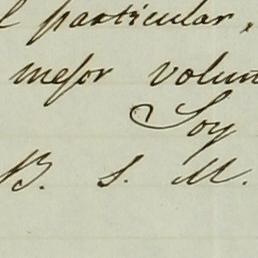 l particular,
mejor volun
Soy
B. S. M.